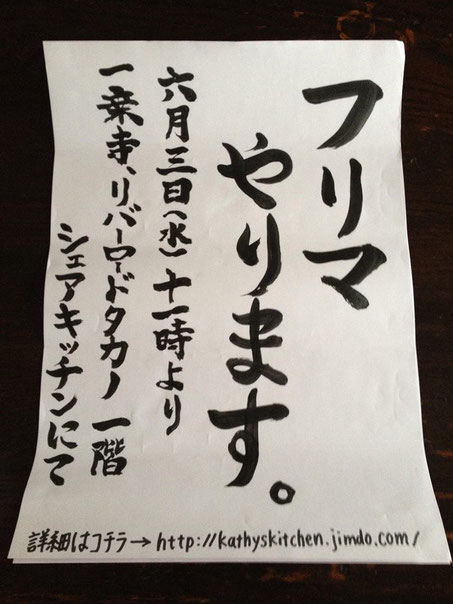 フリマ
やります。
六月三日(水)十一時より
一乗寺、リバーロードタカノ一階
シェアキッチンにて
詳細はコチラ→http://kathyskitchen.jimdo.com/